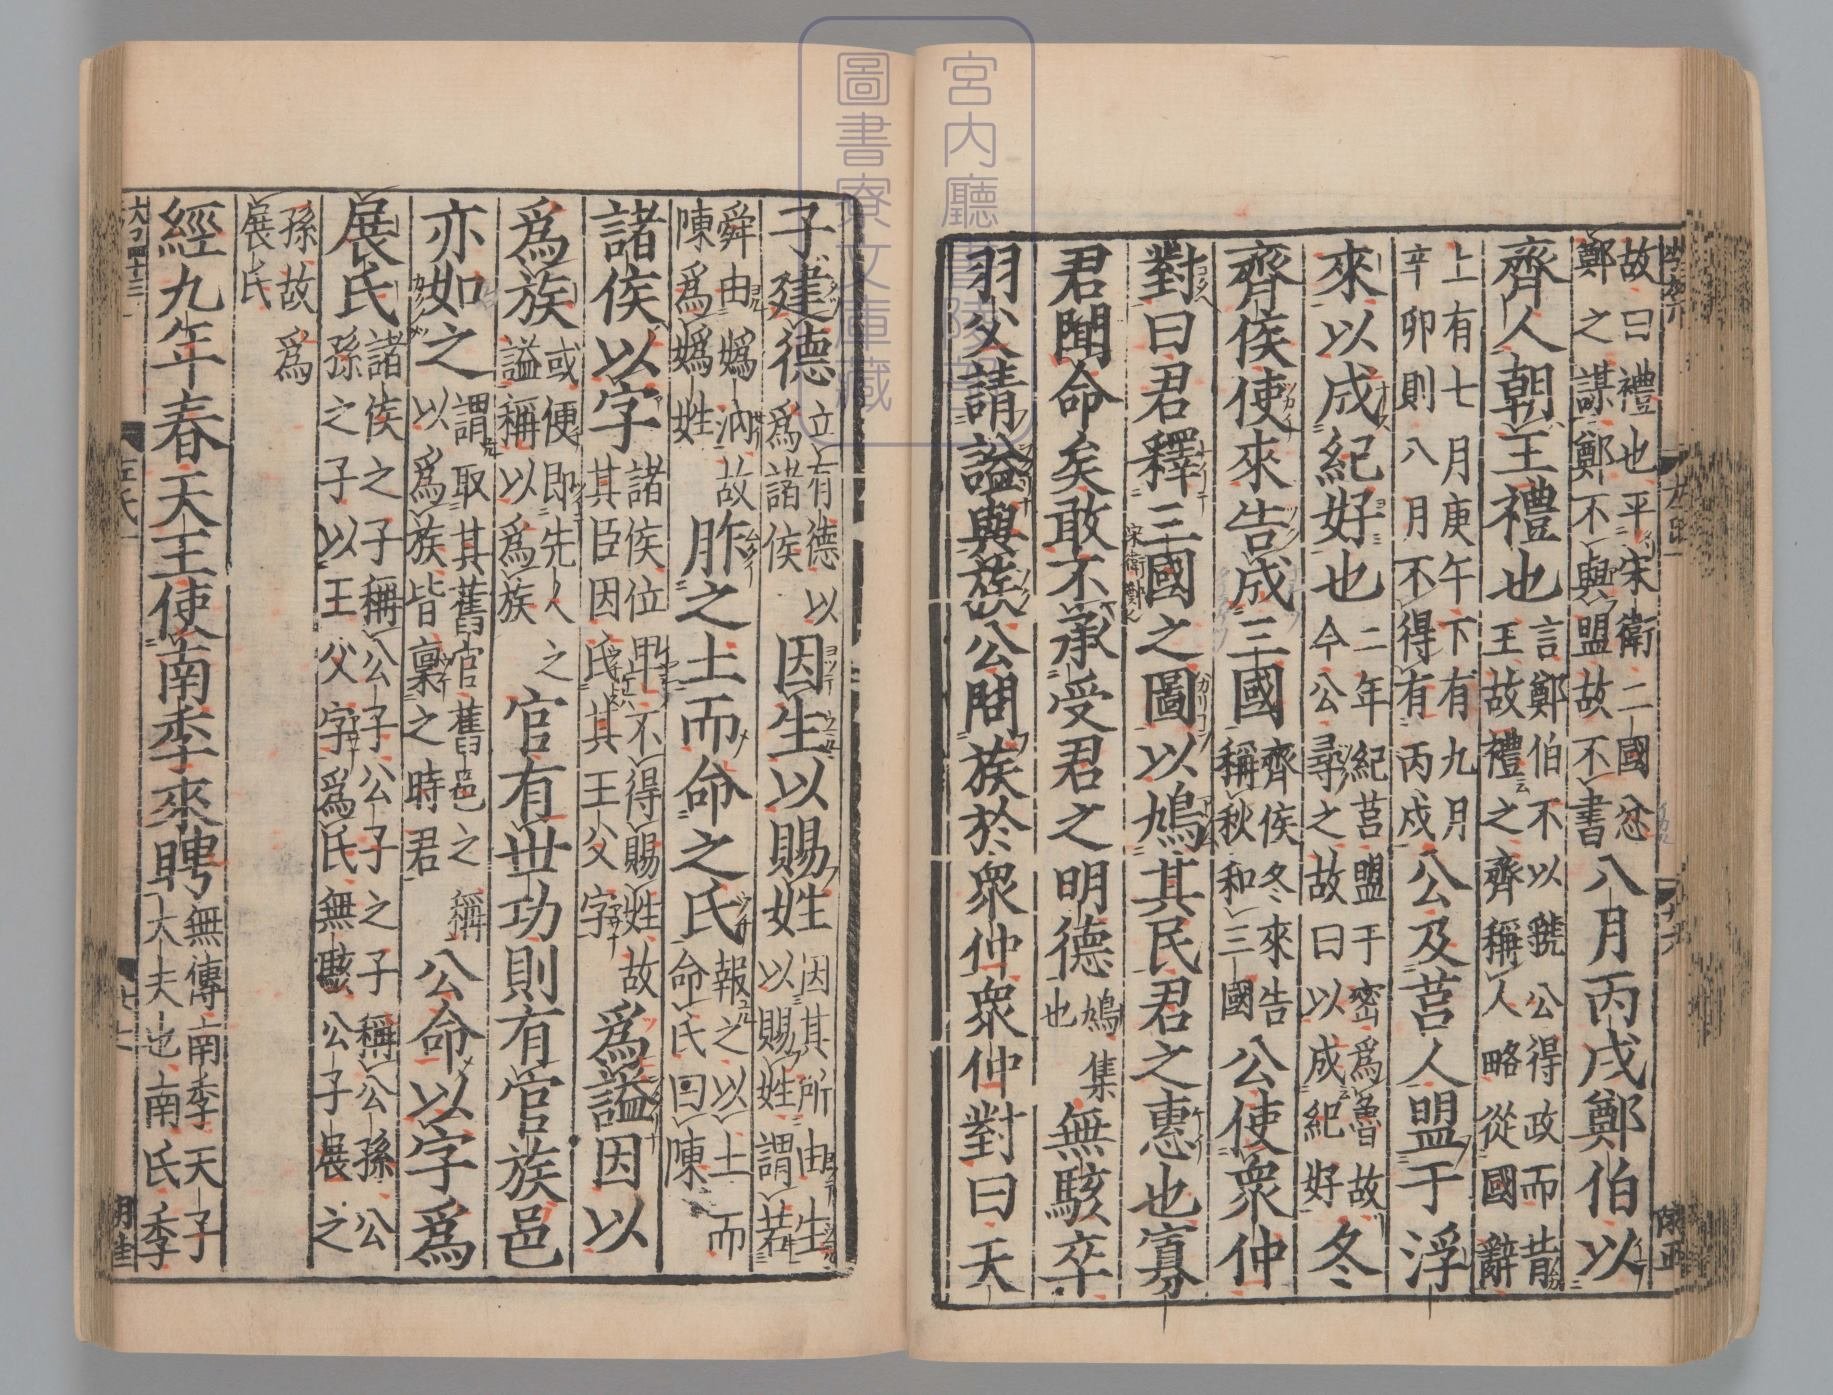 故曰禮也平宋衛二國忿
鄭之謀鄭不與盟故不書八月丙戌鄭伯以
齊人朝王禮也言鄭伯不以虢公得政而昔
王故禮之齊稱人略從國辭
上有七月庚午下有九月
辛卯則八月不得有丙戌公及莒人盟于浮
來以成紀好也二年紀莒盟于密爲魯故
今公尋之故曰以成紀好冬
齊侯使來告成三國齊侯冬來告
稱秋和三國公使衆仲
對曰君釋三國之圖以鳩其民君之惠也寡
君聞命矣敢不承受君之明德鳩集
也無駭卒
羽父請謚與族公問族於衆仲衆仲對曰天
子建德立有德以
爲諸侯因生以賜姓因其所由生
以賜姓謂若
舜由嬀汭故
陳爲嬀姓胙之土而命之氏報之以土而
命氏曰陳
諸侯以字諸侯位卑不得賜姓故
其臣因氏其王父字爲謚因以
爲族或便即先人之
謚稱以爲族官有世功則有官族邑
亦如之謂取其舊官舊邑之稱
以爲族皆稟之時君公命以字爲
展氏諸侯之子稱公子公子之子稱公孫公
孫之子以王父字爲氏無駭公子展之
孫故爲
展氏
經九年春天王使南季來聘無傳南季天子
大夫也南氏季
宮内廳書陵部
圖書寮文庫藏